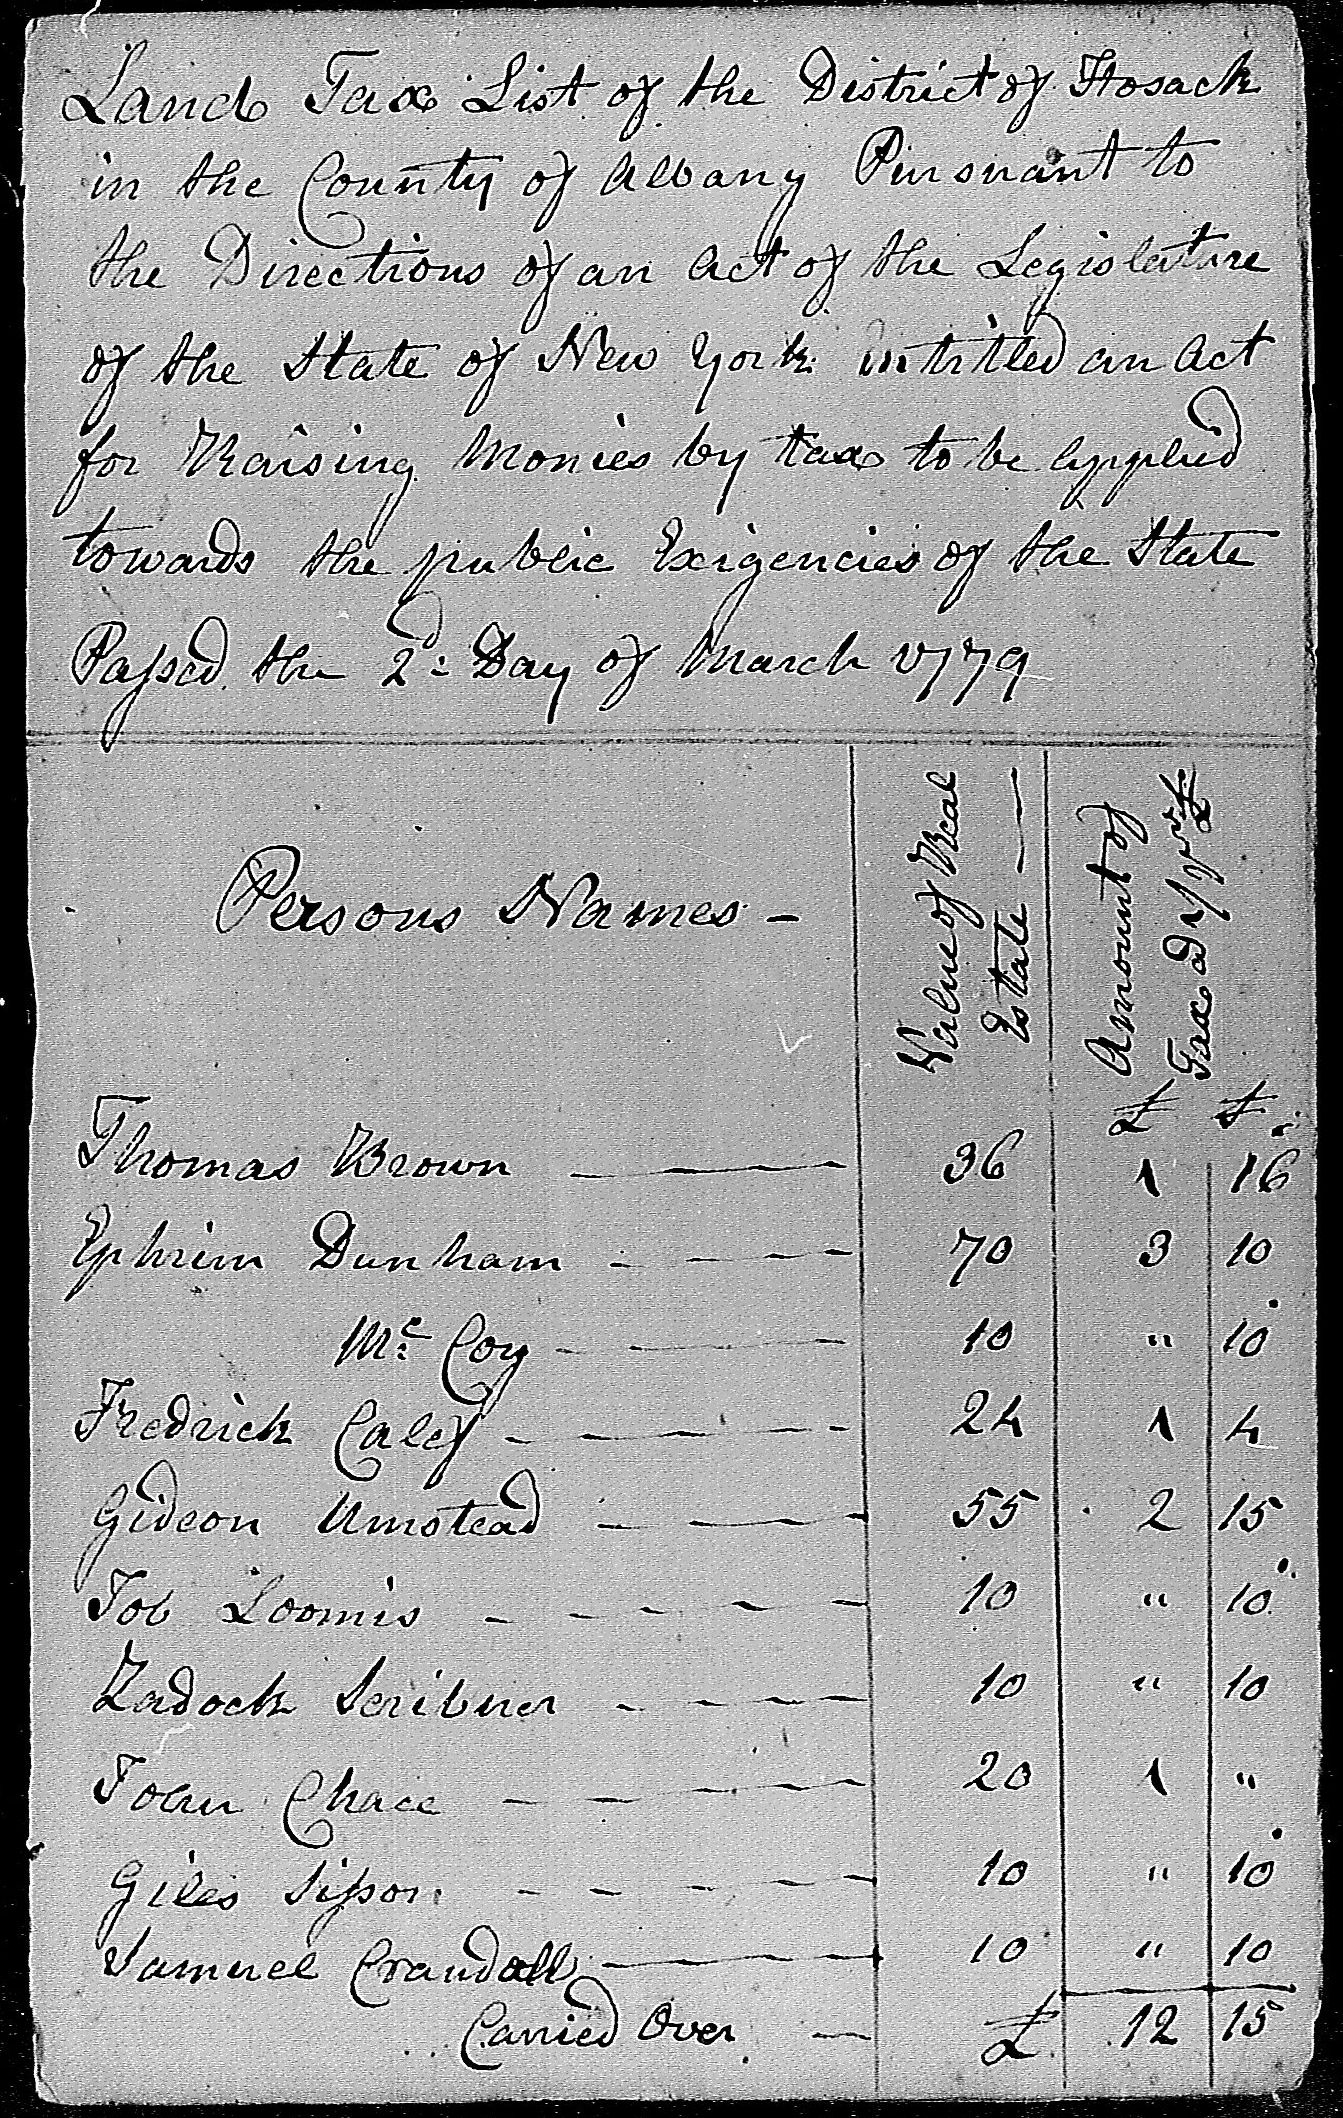 Land Tax List of the District of Hosack
in the County of Albany Pursuant to
the Directions of an Act of the Legislature
of the State of New York intitled an Act
for Raising Monies by tax to be applied
towards the public Exigencies of the State
Passed the 2d: Day of March 1779
Persons Names -
Value of Real
Estate
Amount of
Tax ad 1/ pr £
£ s
Thomas Brown 36 1 16
Ephrim Dunham 70 3 10
Mc: Coy 10 " 10
Fredrick Caley 24 1 4
Gideon Umstead 55 2 15
Job Loomis 10 " 10
Zadock Scribner 10 " 10
John Chace 20 1 "
Giles Sisson 10 " 10
Samuel Crandall 10 " 10
Carried Over £ 12 15